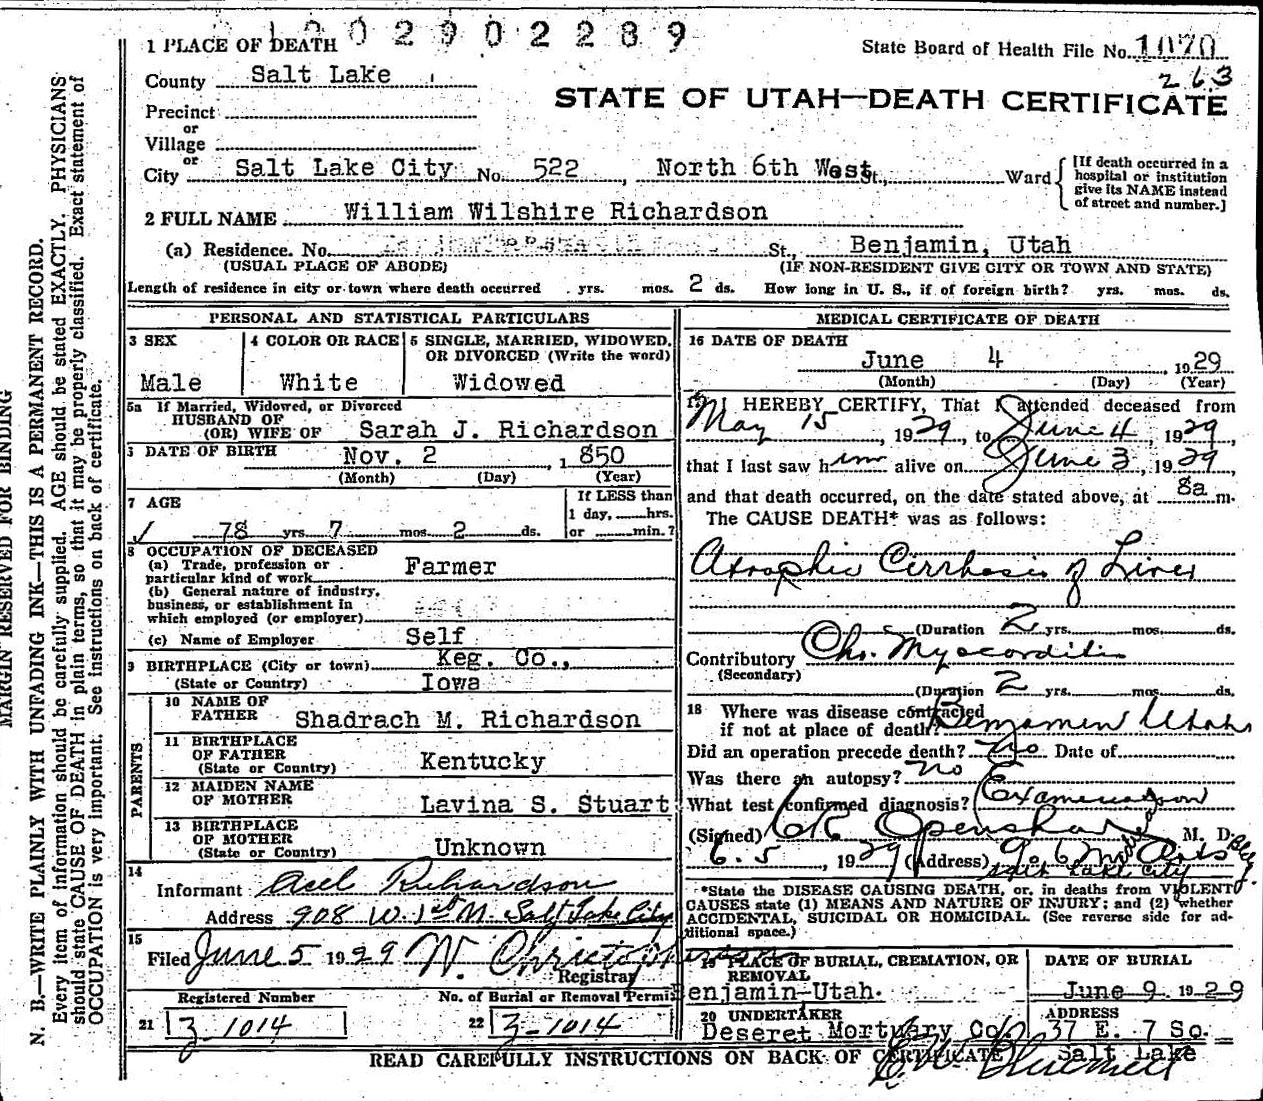 1 PLACE OF DEATH
02902289
State Board of Health File No. 1070
263
County Salt Lake
STATE OF UTAH—DEATH CERTIFICATE
Precinct
or
Village
or
City Salt Lake City No. 522, North 6th West St., Ward
[If death occurred in a hospital or institution give its NAME instead of street and number.]
2 FULL NAME William Wilshire Richardson
(a) Residence. No. St., Benjamin, Utah
(USUAL PLACE OF ABODE) (IF NON-RESIDENT GIVE CITY OR TOWN AND STATE)
Length of residence in city or town where death occurred yrs. mos. 2 ds. How long in U. S., if of foreign birth? yrs. mos. ds.
PERSONAL AND STATISTICAL PARTICULARS
3 SEX
Male
4 COLOR OR RACE
White
5 SINGLE, MARRIED, WIDOWED, OR DIVORCED (Write the word)
Widowed
5a If Married, Widowed, or Divorced
HUSBAND OF
(OR) WIFE OF Sarah J. Richardson
DATE OF BIRTH Nov. 2, 1850
(Month) (Day) (Year)
7 AGE
78 yrs. 7 mos. 2 ds.
If LESS than
1 day, hrs.
or min.?
8 OCCUPATION OF DECEASED
(a) Trade, profession or
particular kind of work Farmer
(b) General nature of industry,
business, or establishment in
which employed (or employer)
(c) Name of Employer Self
9 BIRTHPLACE (City or town) Keg. Co.,
(State or Country) Iowa
PARENTS
10 NAME OF
FATHER Shadrach M. Richardson
11 BIRTHPLACE
OF FATHER
(State or Country) Kentucky
12 MAIDEN NAME
OF MOTHER Lavina S. Stuart
13 BIRTHPLACE
OF MOTHER
(State or Country) Unknown
14
Informant Richardson
Address 908 W. 1st N. Salt Lake City
15
Filed June 5 1929
Registrar
Registered Number
21 3-1014
No. of Burial or Removal Permit
22 3-1014
MEDICAL CERTIFICATE OF DEATH
16 DATE OF DEATH
June 4, 1929
(Month) (Day) (Year)
17 I HEREBY CERTIFY, That I attended deceased from
May 15, 1929, to June 4, 1929,
that I last saw him alive on June 3, 1929,
and that death occurred, on the date stated above, at 8a m.
The CAUSE DEATH* was as follows:
Atrophic Cirrhosis of Liver
(Duration 2 yrs. mos. ds.
Contributory Chr. Myocarditis
(Secondary)
(Duration 2 yrs. mos. ds.
18 Where was disease contracted
if not at place of death? Benjamin Utah
Did an operation precede death? No Date of
Was there an autopsy? no
What test confirmed diagnosis? Examination
(Signed) Openshaw M. D.
6.5, 1929 (Address) 906 Medical Arts Bldg.
Salt Lake City
*State the DISEASE CAUSING DEATH, or, in deaths from VIOLENT
CAUSES state (1) MEANS AND NATURE OF INJURY; and (2) whether
ACCIDENTAL, SUICIDAL OR HOMICIDAL. (See reverse side for additional space.)
19 PLACE OF BURIAL, CREMATION, OR
REMOVAL
Benjamin-Utah.
DATE OF BURIAL
June 9. 1929
20 UNDERTAKER
Deseret Mortuary Co
ADDRESS
37 E. 7 So.
Salt Lake
READ CAREFULLY INSTRUCTIONS ON BACK OF CERTIFICATE
MARGIN RESERVED FOR BINDING
N. B.—WRITE PLAINLY WITH UNFADING INK—THIS IS A PERMANENT RECORD.
Every item of information should be carefully supplied. AGE should be stated EXACTLY. PHYSICIANS
should state CAUSE OF DEATH in plain terms, so that it may be properly classified. Exact statement of
OCCUPATION is very important. See instructions on back of certificate.